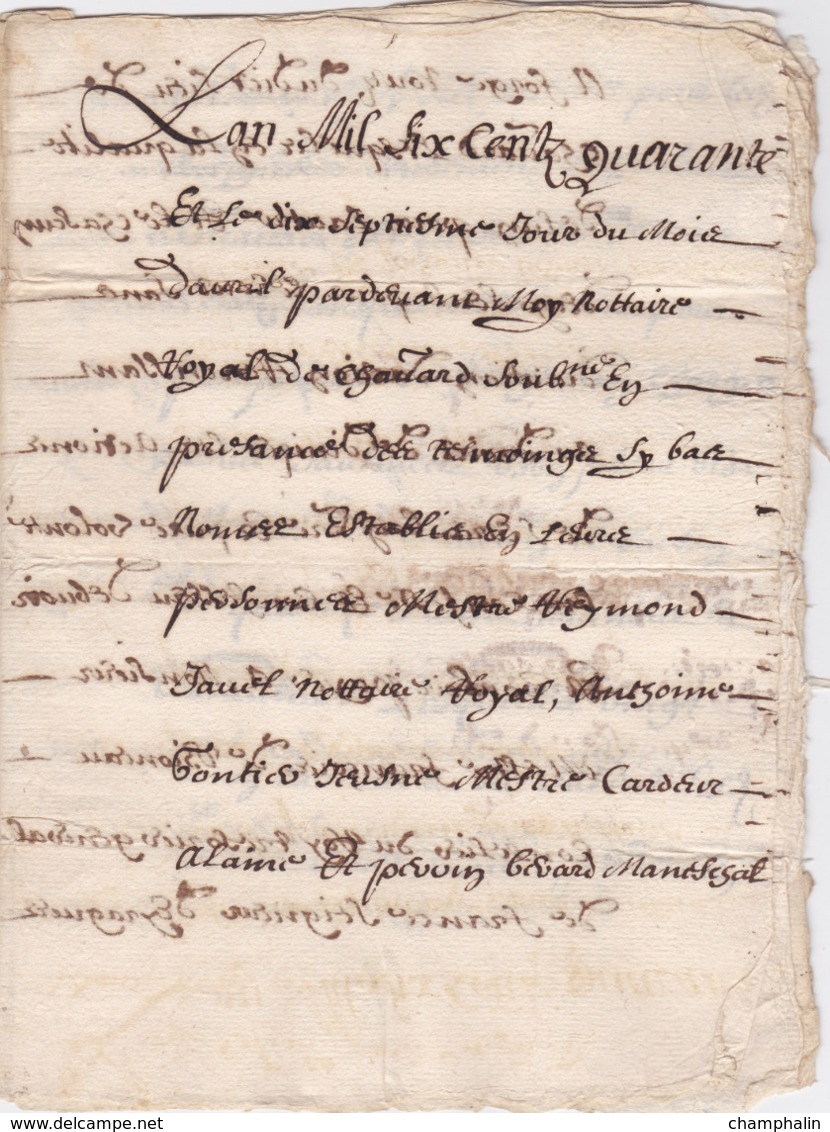 Lan Mil Six Centz Quarante
Et Le dix septiesme Jour du Mois
davril pardevant Moy Nottaire
Royal de soubné En
presance des Tesmoings sy bas
Nomes Establis En Leurs
personnes Mestre Reymond
Javel Nottaire Royal, Anthoine
Gontier Jeusne Mestre Cardeur
Alaine Et perrin berard Mareschal
www.delcampe.net
champhalin